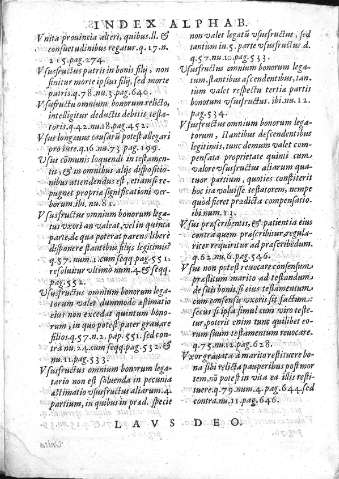 INDEX ALPHAB.
Vnita prouincia alteri, quibus ll. &
consuetudinibus regatur. q.17.n.
215.pag.274.
Vsusfructus patris in bonis filij, non
finitur morte ipsius filij, sed morte
patris q.78.nu.3.pag.640.
Vsusfructu omnium bonorum relicto,
intelligitur deductis debitis testa-
toris.q.42.nu.18.pag.452.
Vsus longæuus causarū potest allegari
pro iure.q.16.nu.73.pag.199.
Vsus cōmunis loquendi in testamen-
tis, & in omnibus alijs dispositio-
nibus attendendus est, etiam si re-
pugnet propria significationi ver-
borum.ibi.nu.81.
Vsusfructus omnium bonorum lega-
tus vxori an valeat, vel in quinta
parte, de qua poterat parens liberè
disponere stantibus filijs legitimis
q.57.num.1.cum seqq. pag.551.
resoluitur vltimo num.4.& seqq.
pag.552.
Vsusfructus omnium bonorum lega-
torum valet dummodo æstimatio
eius non excedat quintum bono-
rum, in quo potest pater grauare
filios.q.57.n.2.pap.551. sed con-
tra nu.24.cum seqq. pag.532. &
nu.11.pag.533.
Vsusfructus omnium bonorum lega-
tario non est soluenda in pecunia
æstimatio vsusfructus aliarum.4.
partium, in quibus in præd. specie
non valet legatū vsusfructus, sed
tantùm in 5. parte vsusfructus d.
q.57.nu.10.pag.533.
Vsusfructus omnium bonorum lega-
tum, stantibus ascendentibus, tan-
tùm valet respectu tertia partis
bonorum vsusfructus. ibi.nu.12.
pag.534.
Vsusfructus omnium bonorum lega-
torum, stantibus descendentibus
legitimis, tunc demum valet com-
pensata proprietate quinti cum
valore vsusfructus aliarum qua-
tuor partium, quoties constiterit
hoc ita voluisse testatorem, nempe
quòd fieret prædicta compensatio.
ibi num.13.
Vsus præscribentis, & patientia eius
contra quem præscribitur, regula-
riter requiritur ad præscribēdum.
q.62.nu.6.pag.546.
Vsus non potest reuocare consensum
præstitum marito ad testandum
de suis bonis, si eius testamentum
cum consensu vxoris sit factum:
secus si ipsa simul cum viro teste-
tur, poterit enim tunc quilibet eo-
rum suum testamentum reuocare.
q.75.nu.12.pag.628.
Vxor grauata à marito restituere bona
sibi relicta pauperibus post mor-
tem, nō potest in vita ea illis resti-
tuere.q.79.num.4.pag.644.sed
contra.nu.11.pag.646.
LAVS DEO.